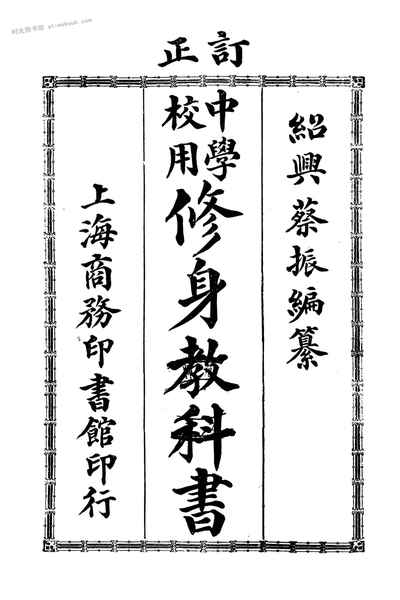 訂正
紹興蔡振編纂
中學校用
修身教科書
上海商務印書館印行